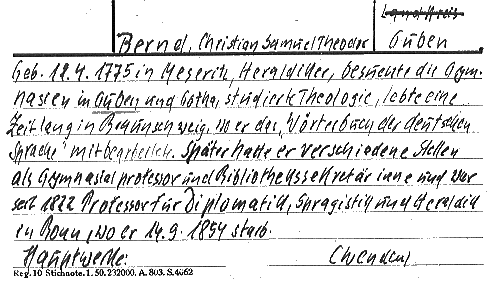 Landkreis
Bernd, Christian Samuel Theodor Guben
Geb. 12.4. 1775 in Meseritz, Heraldiker, besuchte die Gym-
nasien in Guben und Gotha, studierte Theologie, lebte eine
Zeitlang in Braunschweig, wo er das "Wörterbuch der deutschen
Sprache" mitbearbeitete. Später hatte er verschiedene Stellen
als Gymnasialprofessor und Bibliothekssekretär inne und war
seit 1822 Professor für Diplomatik, Spragistik und Heraldik
in Bonn, wo er 14.9. 1854 starb.
Hauptwerke:
Reg. 10 Stichnote. 1. 50. 232000. A. 803. S. 4062